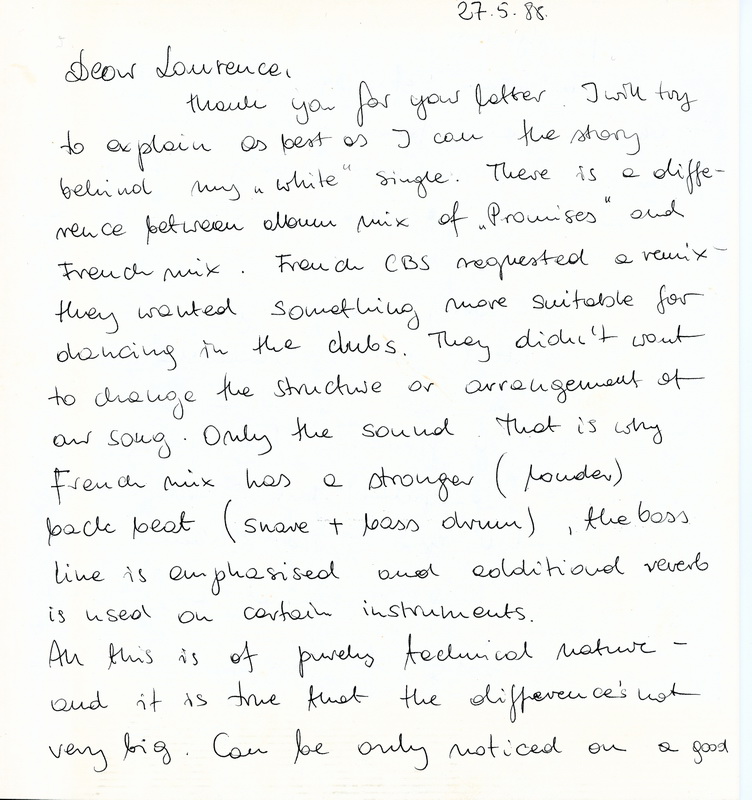 27.5.88.
Dear Laurence,
thank you for your letter. I will try
to explain as best as I can the story
behind my „white“ single. There is a diffe-
rence between album mix of „Promises“ and
French mix. French CBS requested a remix -
they wanted something more suitable for
dancing in the clubs. They didn't want
to change the structure or arrangement of
our song. Only the sound. That is why
French mix has a stronger (louder)
back beat (snare + bass drum), the bass
line is emphasised and additional reverb
is used on certain instruments.
All this is of purely technical nature -
and it is true that the difference's not
very big. Can be only noticed on a good